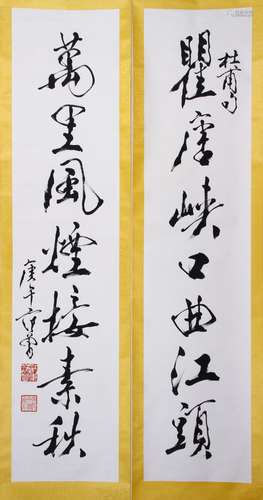 杜甫句
瞿唐峡口曲江頭
萬里風煙接素秋
庚午范曾